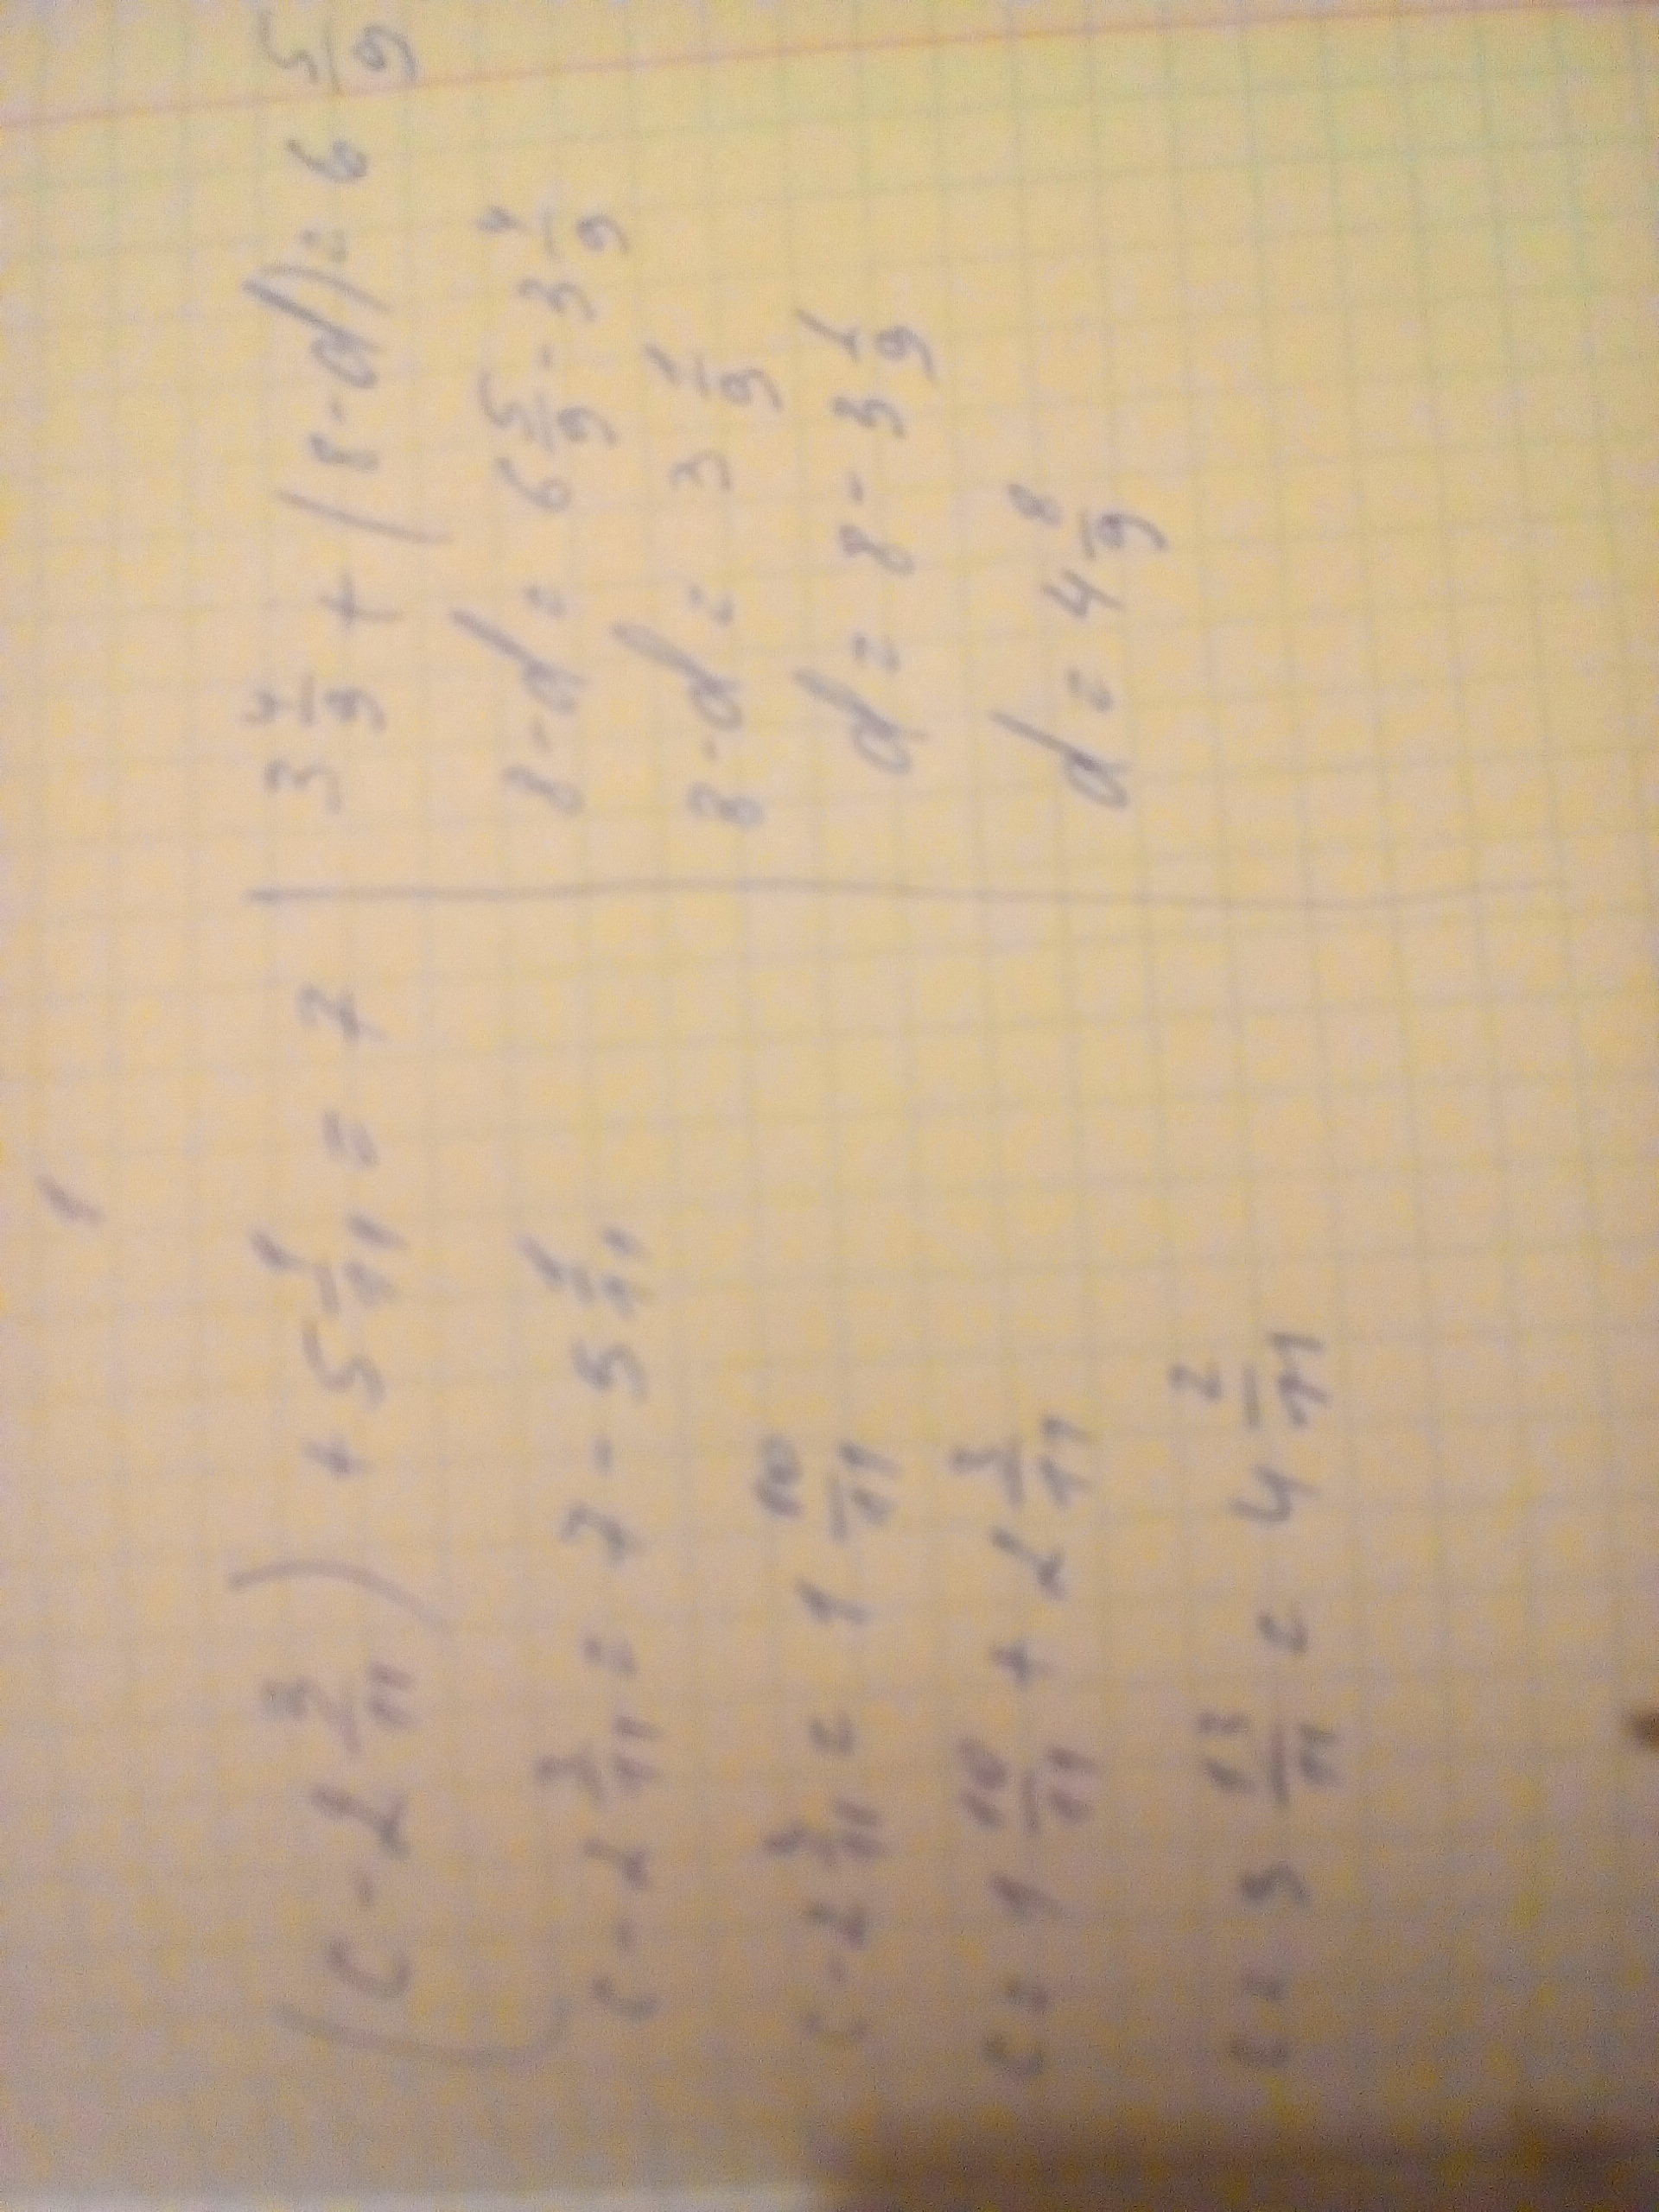 1
(c - 2 3/11) + 5 1/11 = 7
c - 2 3/11 = 7 - 5 1/11
c - 2 3/11 = 1 10/11
c = 1 10/11 + 2 3/11
c = 3 13/11 = 4 2/11
3 4/9 + (8 - d) = 6 5/9
8 - d = 6 5/9 - 3 4/9
8 - d = 3 1/9
d = 8 - 3 1/9
d = 4 8/9